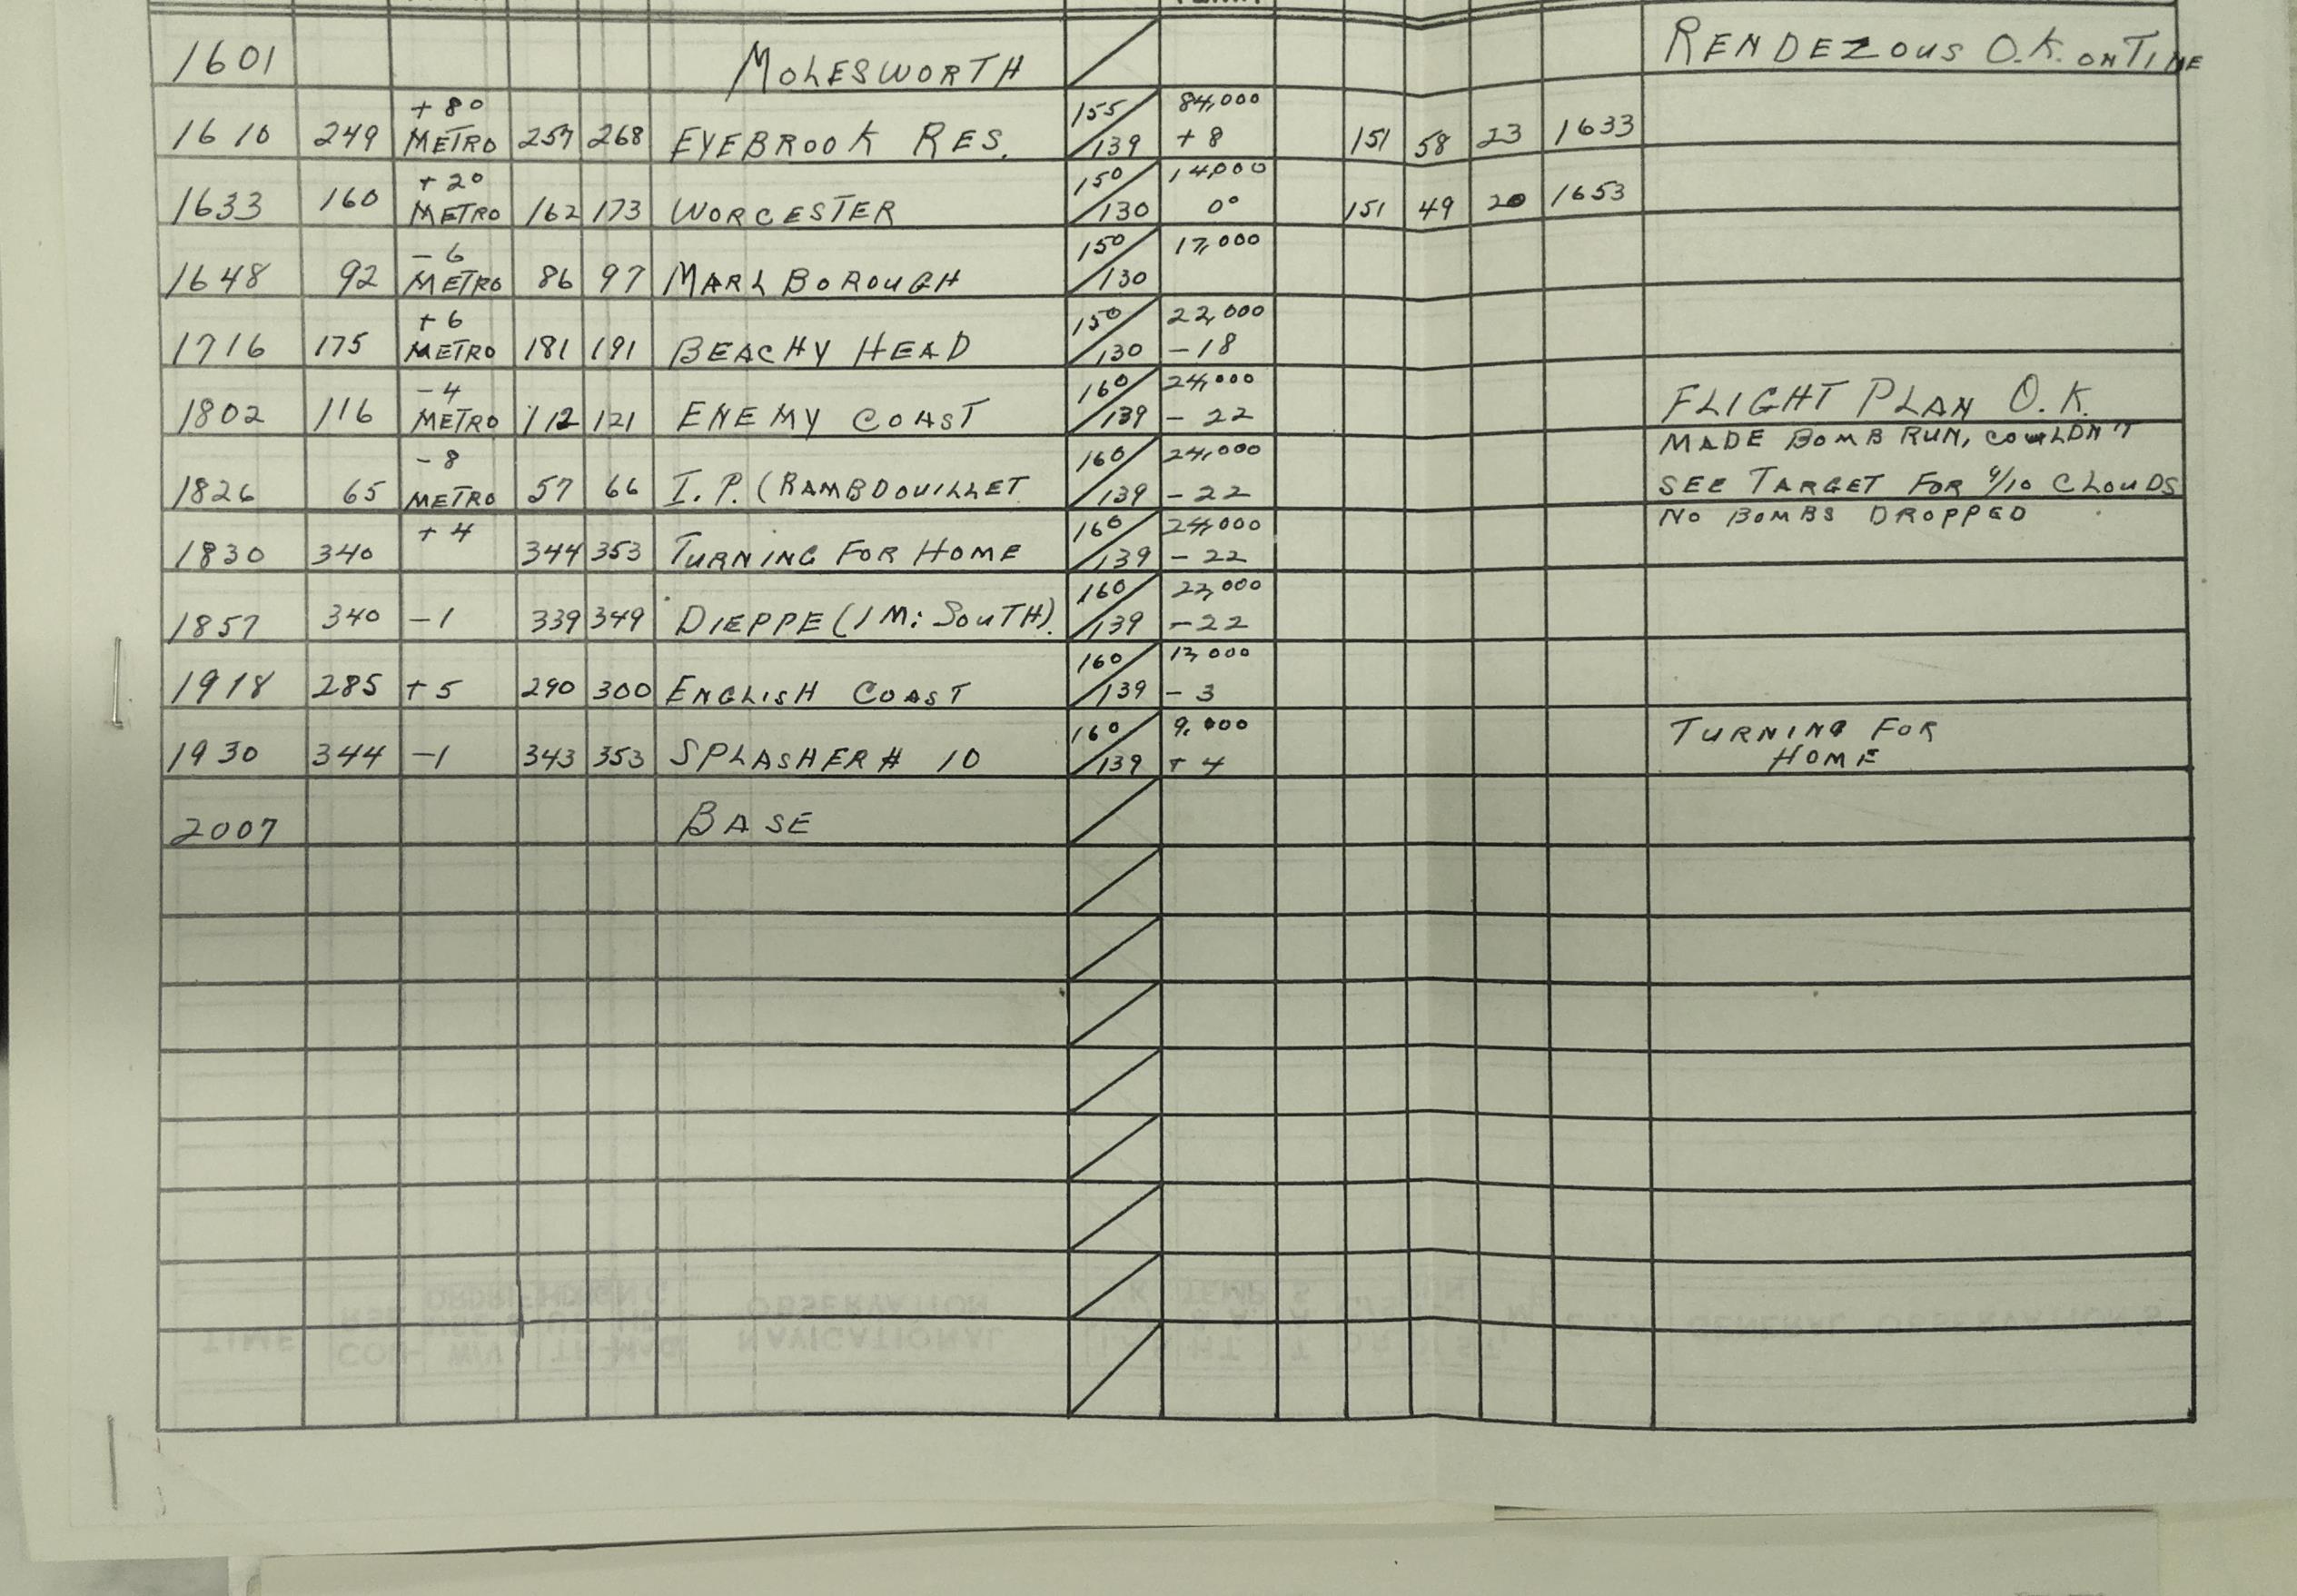 1601 MOLESWORTH RENDEZOUS O.K. ON TIME
+ 8° 155 84,000
1610 249 METRO 257 268 EYEBROOK RES. 139 + 8 151 58 23 1633
+ 2° 150 14,000
1633 160 METRO 162 173 WORCESTER 130 0° 151 49 20 1653
- 6 150 17,000
1648 92 METRO 86 97 MARLBOROUGH 130
+ 6 150 22,000
1716 175 METRO 181 191 BEACHY HEAD 130 - 18
- 4 160 24,000
1802 116 METRO 112 121 ENEMY COAST 139 - 22 FLIGHT PLAN O.K.
- 8 160 24,000 MADE BOMB RUN, COULDN'T
1826 65 METRO 57 66 I.P. (RAMBDOUILLET 139 - 22 SEE TARGET FOR 9/10 CLOUDS
+ 4 160 24,000 NO BOMBS DROPPED
1830 340 344 353 TURNING FOR HOME 139 - 22
160 23,000
1857 340 - 1 339 349 DIEPPE (1 MI SOUTH). 139 - 22
160 13,000
1918 285 + 5 290 300 ENGLISH COAST 139 - 3
160 9,000 TURNING FOR
1930 344 - 1 343 353 SPLASHER # 10 139 + 4 HOME
2007 BASE